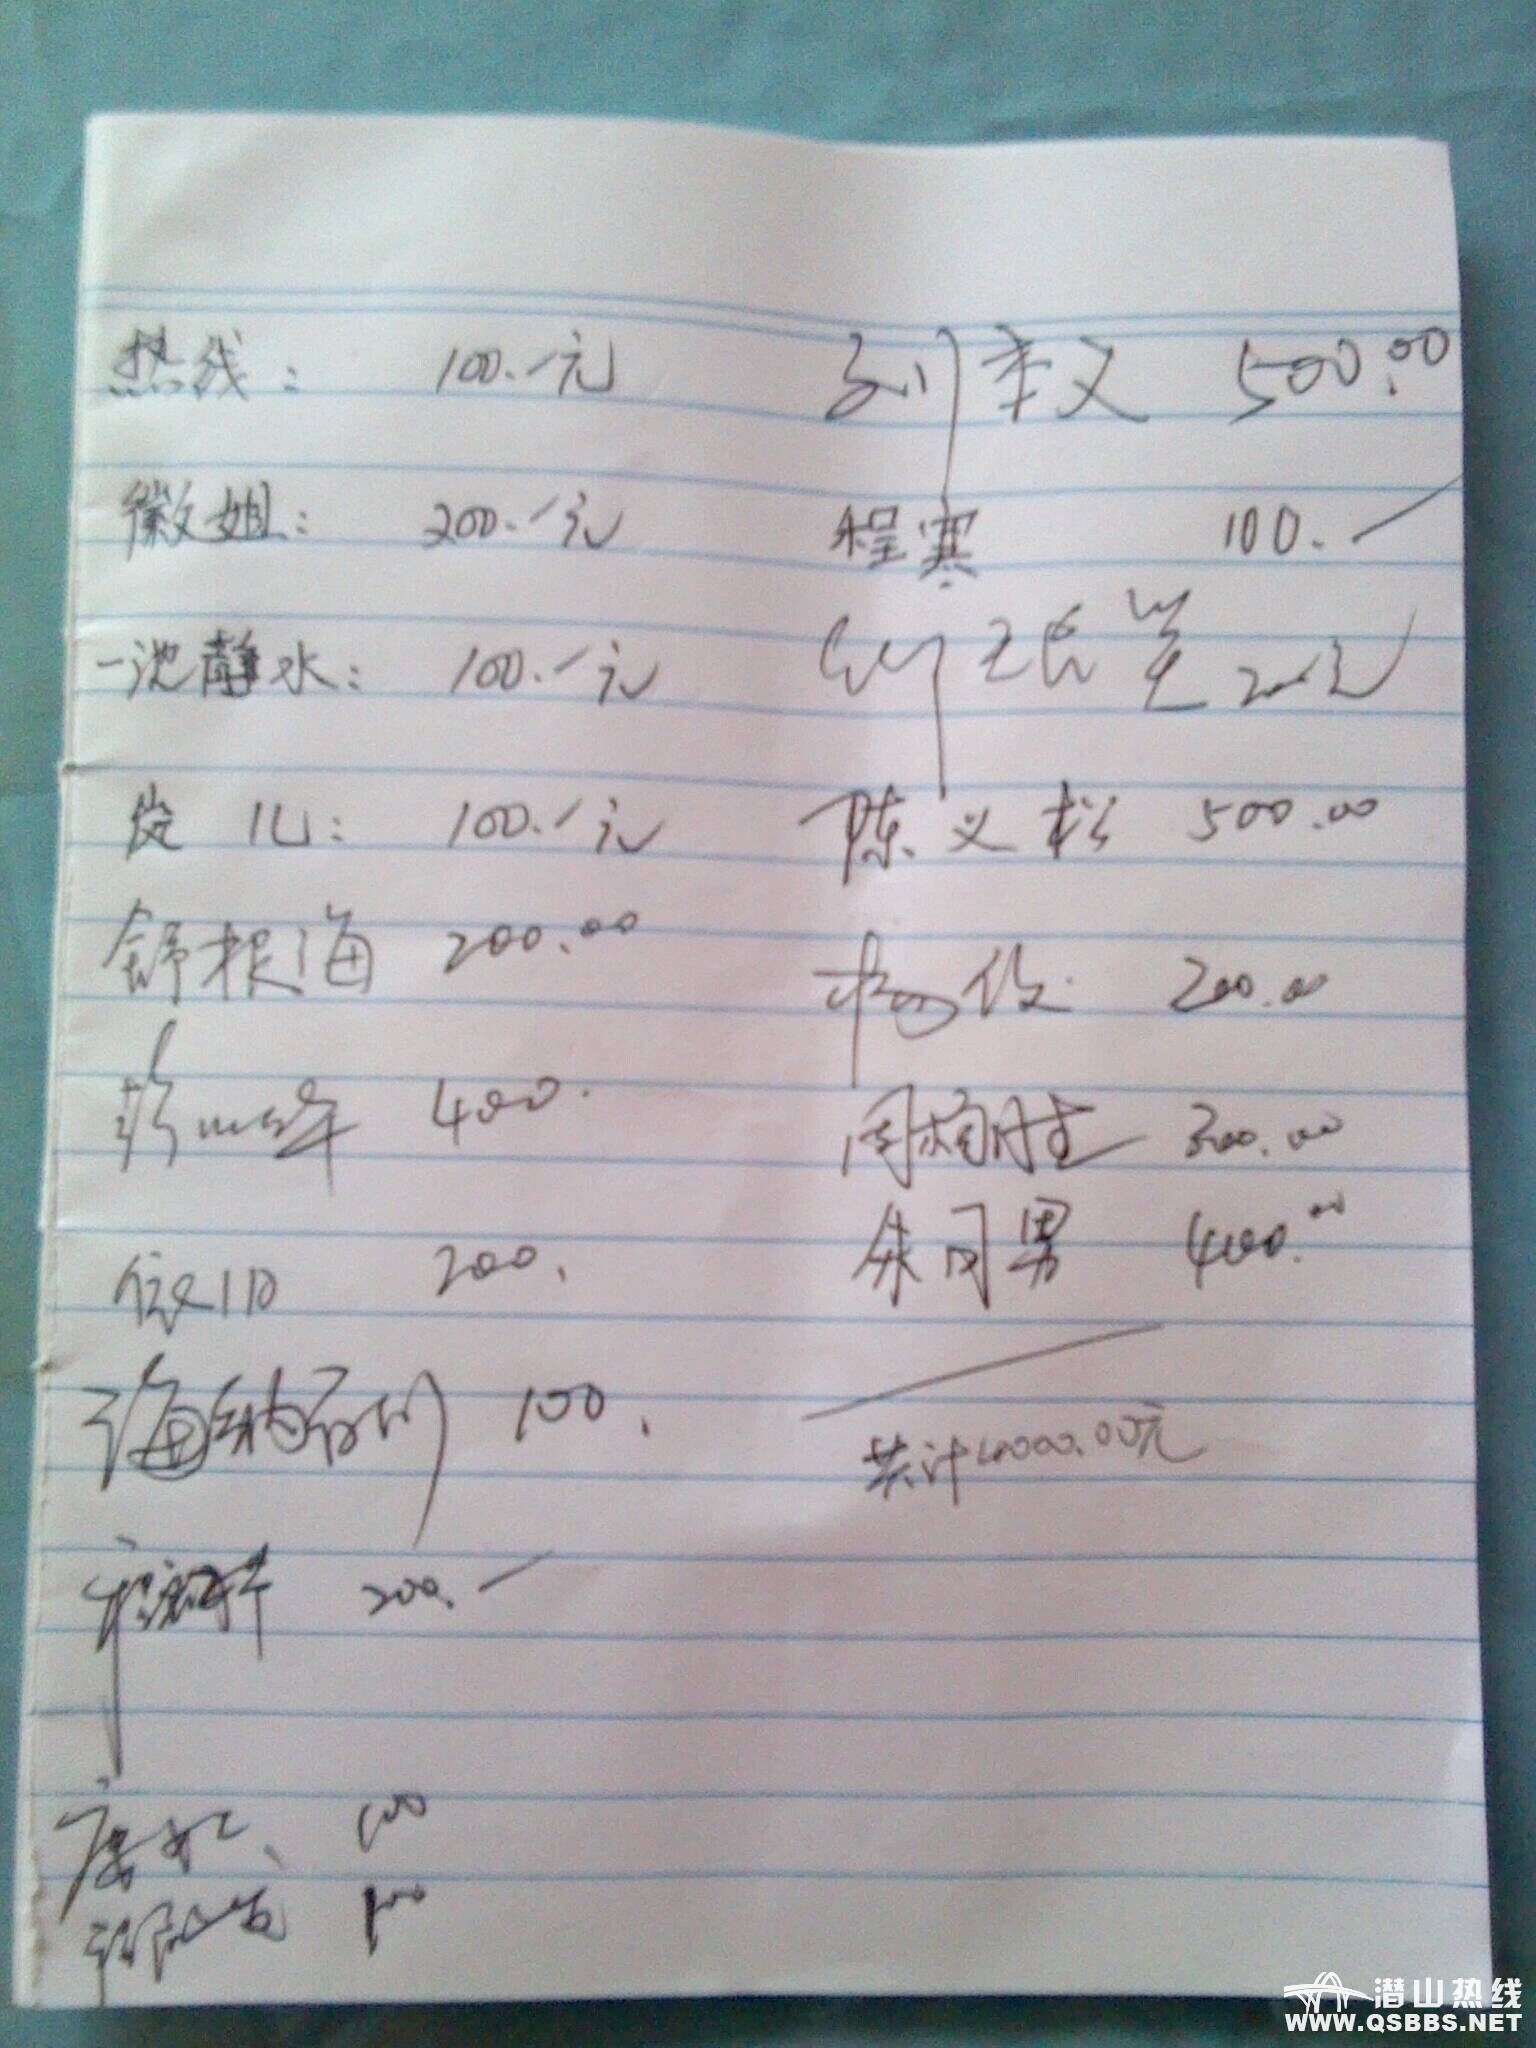 热线： 100.-元
徽姐： 200.-元
一池静水： 100.-元
儿： 100.-元
舒根海 200.00
400.
200.
海纳百川 100.
200.-
100
100
刘本义 500.00
程寒 100.-
200元
陈义松 500.00
杨俊 200.00
周 300.00
朱同男 400.00
共计4000.00元
潜山热线
WWW.QSBBS.NET